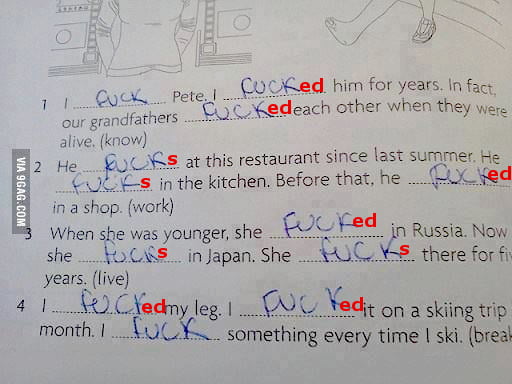 1 I ...FUCK... Pete. I ...FUCKed him for years. In fact,
our grandfathers ...FUCKed each other when they were
alive. (know)
2 He ...FUCKs at this restaurant since last summer. He
...FUCKs in the kitchen. Before that, he ...FUCKed
in a shop. (work)
3 When she was younger, she ...FUCKed in Russia. Now
she ...FUCKs in Japan. She ...FUCKs there for fi
years. (live)
4 I ...FUCKed my leg. I ...FUCKed it on a skiing trip
month. I ...FUCK... something every time I ski. (break
VIA 9GAG.COM